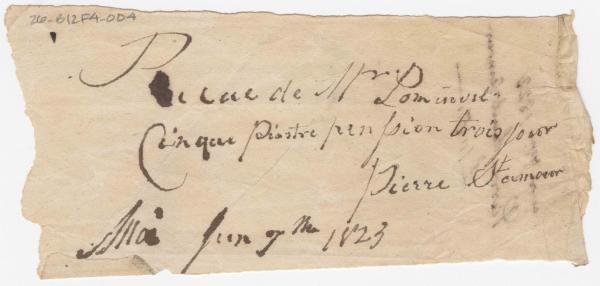 26-B12F4-004
Recue de Mr. Pominvil
Cinque piastre pension trois jour
Pierre St amour
Jun 7th 1823